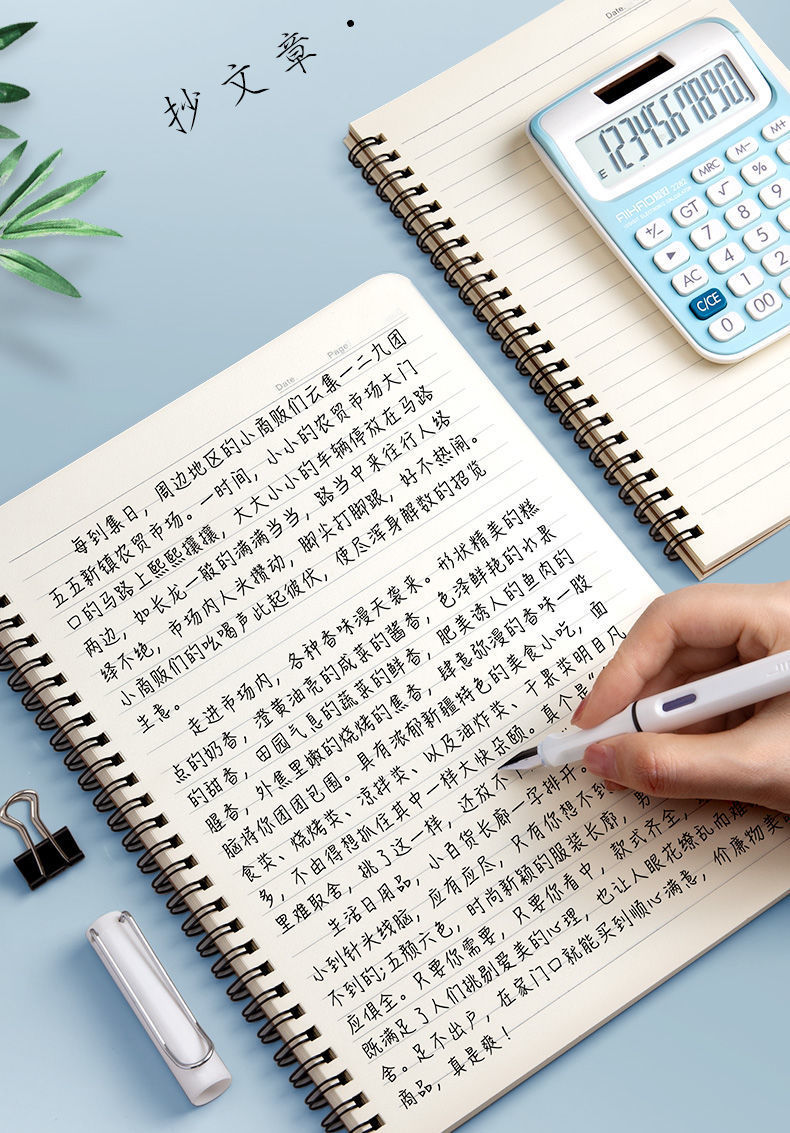 抄文章·
Date
1234567890.
E
AIHAO爱好 2282
MRC M- M+
+/- GT √ %
▶ 7 8 9
AC 4 5
C/CE 1 2
0 00
Date Page
每到集日，周边地区的小商贩们云集一二九团
五五新镇农贸市场。一时间，小小的农贸市场大门
口的马路上熙熙攘攘，大大小小的车辆停放在马路
两边，如长龙一般的满满当当，路当中来往行人络
绎不绝，市场内人头攒动，脚尖打脚跟，好不热闹。
小商贩们的吆喝声此起彼伏，使尽浑身解数的招览
生意。
走进市场内，各种香味漫天袭来。形状精美的糕
点的奶香，澄黄油亮的咸菜的酱香，色泽鲜艳的水果
的甜香，田园气息的蔬菜的鲜香，肥美诱人的鱼肉的
腥香，外焦里嫩的烧烤的焦香，肆意弥漫的香味一股
脑将你团团包围。具有浓郁新疆特色的美食小吃，面
食类、烧烤类、凉拌类、以及油炸类、干果类明目凡
多，不由得想抓住其中一样大快朵颐。真个是“
里难取舍，挑了这一样，还放不
生活日用品，小百货长廊一字排开。
小到针头线脑，应有应尽，只有你想不到
不到的；五颜六色，时尚新颖的服装长廊，男
应俱全。只要你需要，只要你看中，款式齐全，
既满足了人们挑剔爱美的心理，也让人眼花缭乱而难
舍。足不出户，在家门口就能买到顺心满意，价廉物美
商品，真是爽！